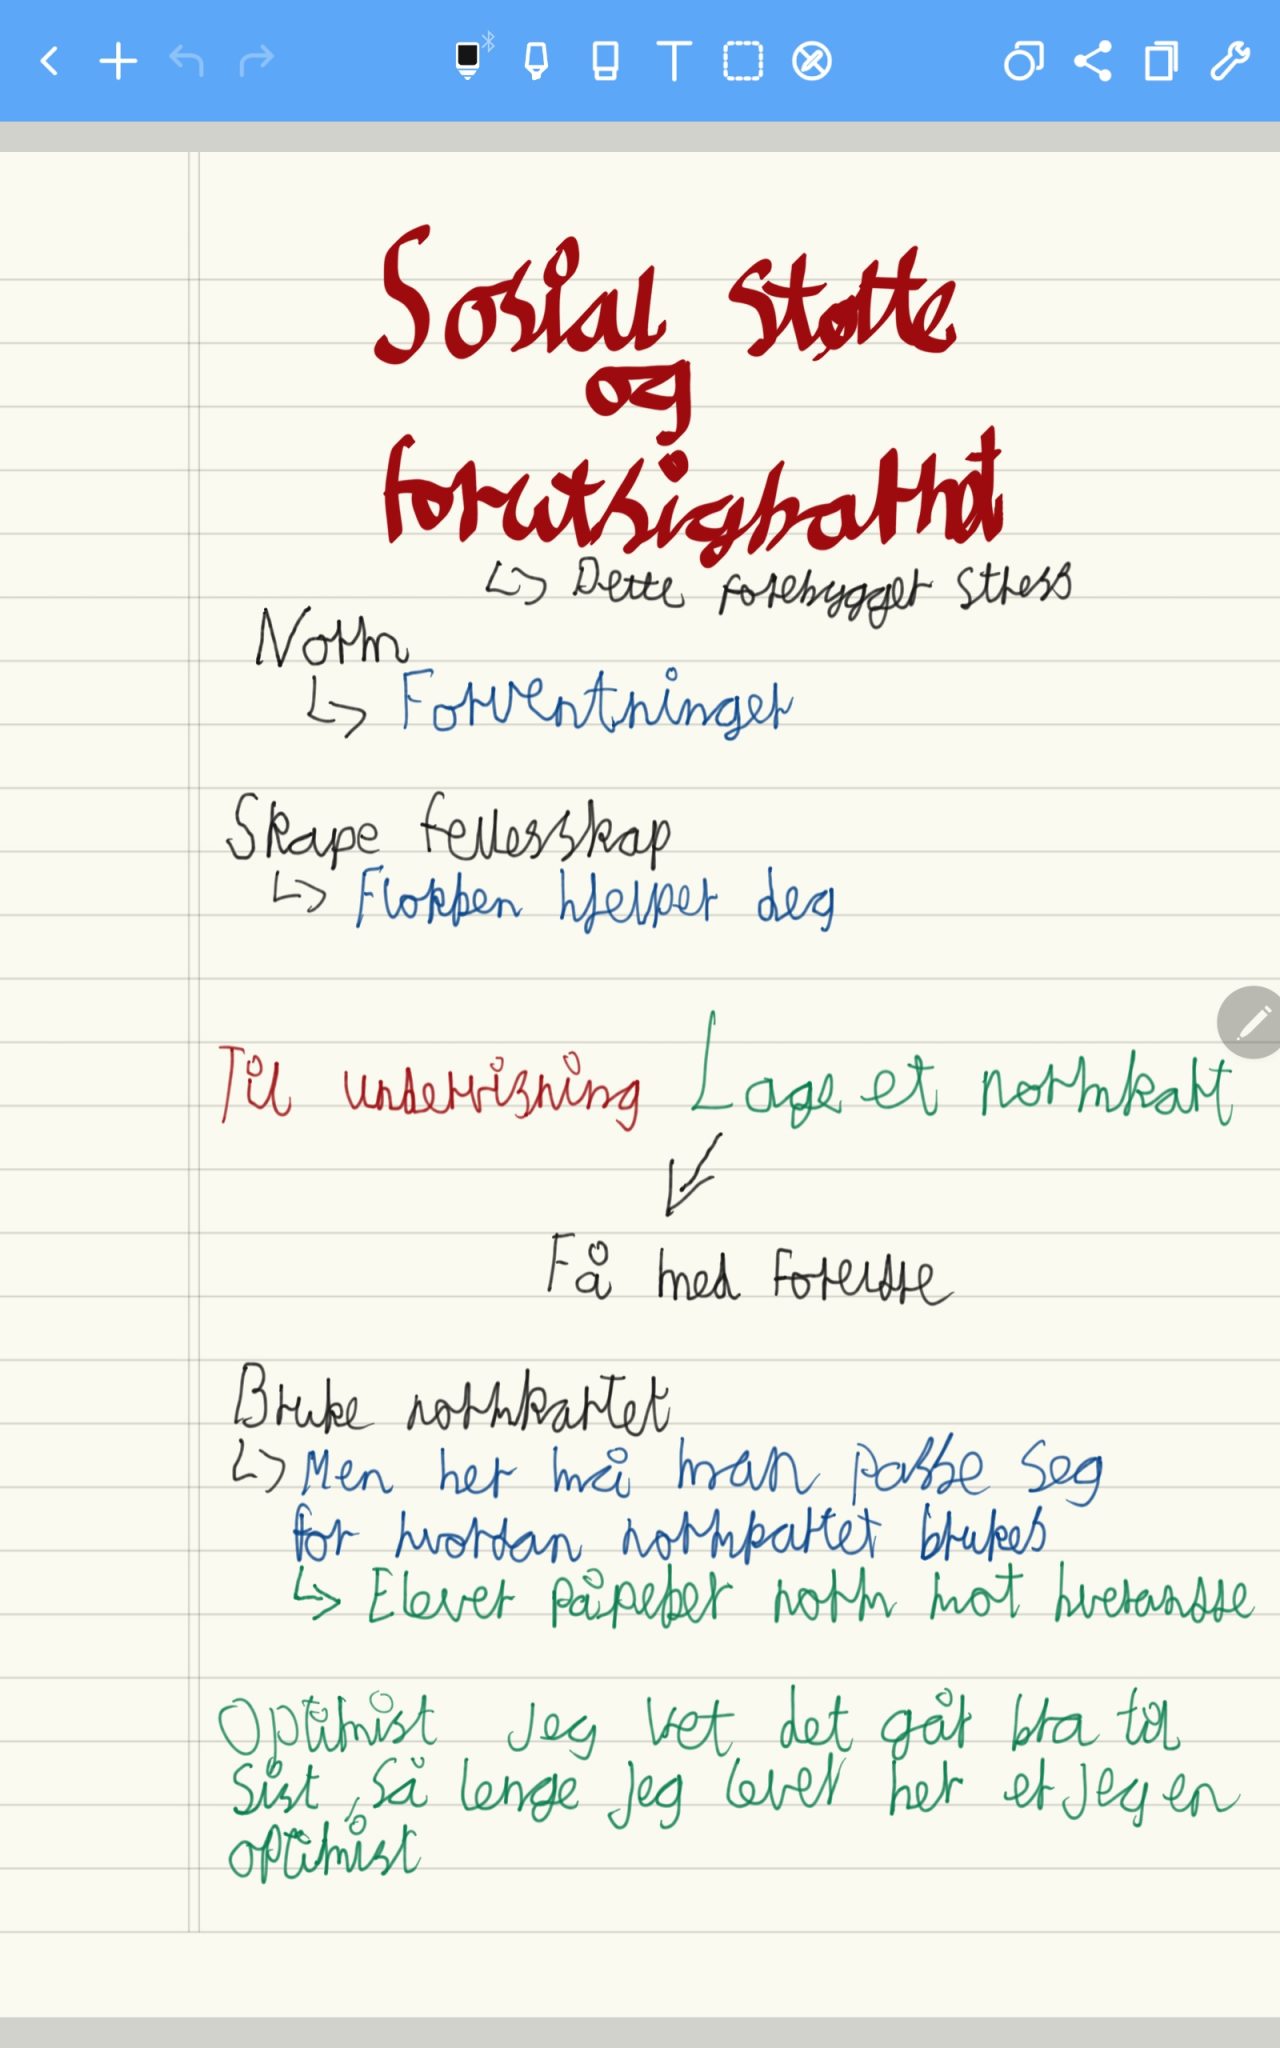 Sosial støtte
og
forutsigbarhet
↳ Dette forebygger stress
Norm
↳ Forventninger
Skape fellesskap
↳ Flokken hjelper deg
Til undervisning Lage et normkart
Få med foreldre
Bruke normkartet
↳ Men her må man passe seg
for hvordan normkartet brukes
↳ Elever påpeker norm mot hverandre
Optimist jeg vet det går bra til
sist, så lenge jeg lever her er jeg en
optimist